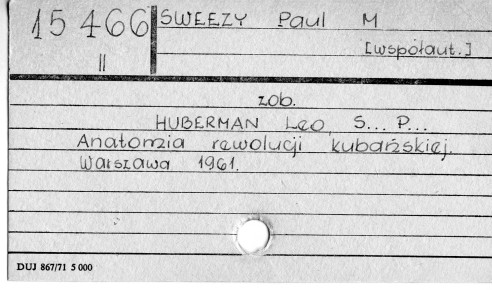 15 466 SWEEZY Paul M
II [współaut.]
zob.
HUBERMAN Leo, S... P...
Anatomia rewolucji kubańskiej.
Warszawa 1961.
DUJ 867/71 5 000